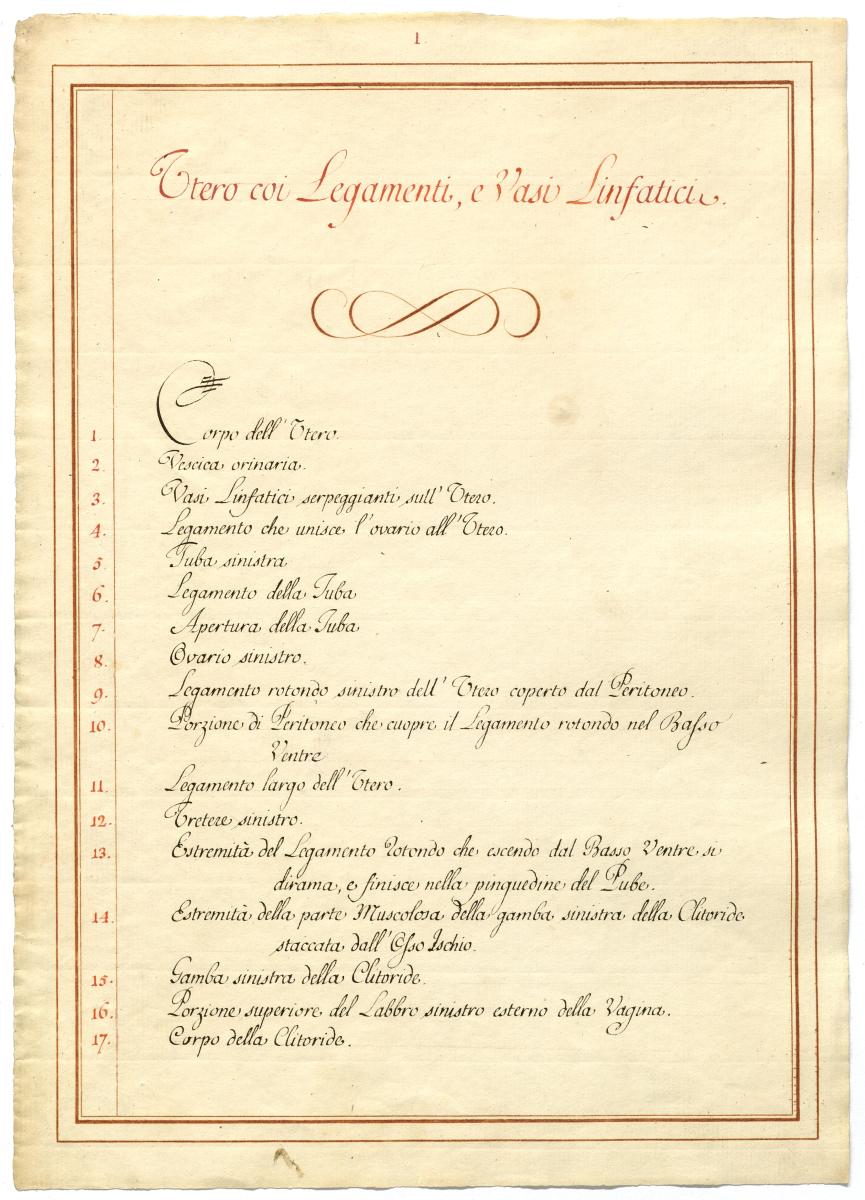 1
Utero coi Legamenti, e Vasi Linfatici.
1. Corpo dell' Utero.
2. Vescica orinaria.
3. Vasi Linfatici serpeggianti sull' Utero.
4. Legamento che unisce l'ovario all' Utero.
5. Tuba sinistra
6. Legamento della Tuba
7. Apertura della Tuba
8. Ovario sinistro.
9. Legamento rotondo sinistro dell' Utero coperto dal Peritoneo.
10. Porzione di Peritoneo che cuopre il Legamento rotondo nel Basso
Ventre
11. Legamento largo dell' Utero.
12. Uretere sinistro.
13. Estremità del Legamento rotondo che escendo dal Basso Ventre si
dirama, e finisce nella pinguedine del Pube.
14. Estremità della parte Muscolosa della gamba sinistra della Clitoride
staccata dall' Osso Ischio.
15. Gamba sinistra della Clitoride.
16. Porzione superiore del Labbro sinistro esterno della Vagina.
17. Corpo della Clitoride.